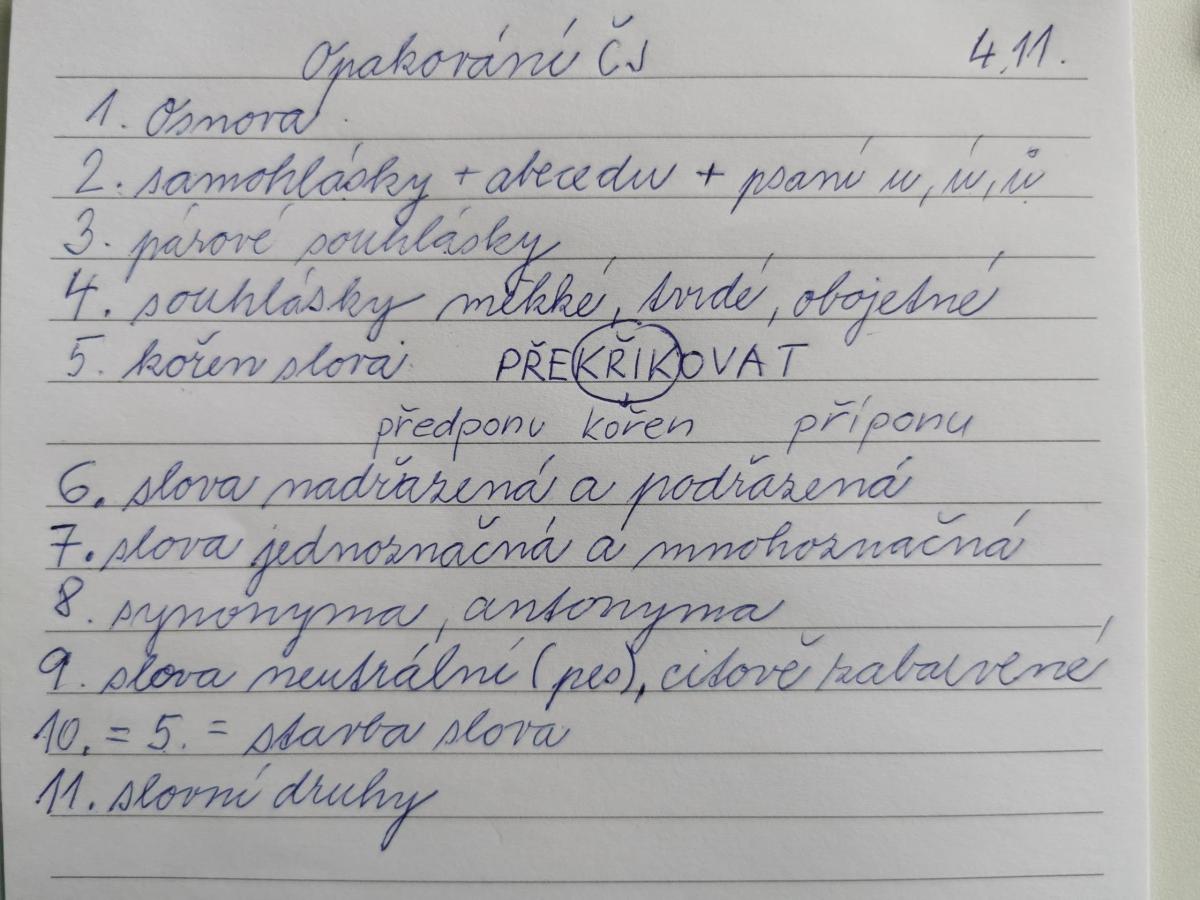 Opakování ČJ 4.11.
1. Osnova
2. samohlásky + abecedu + psaní u, ú, ů
3. párové souhlásky
4. souhlásky měkké, tvrdé, obojetné
5. kořen slova PŘEKŘIKOVAT
předponu kořen příponu
6. slova nadřazená a podřazená
7. slova jednoznačná a mnohoznačná
8. synonyma, antonyma
9. slova neutrální (pes), citově zabarvené
10. = 5. = stavba slova
11. slovní druhy